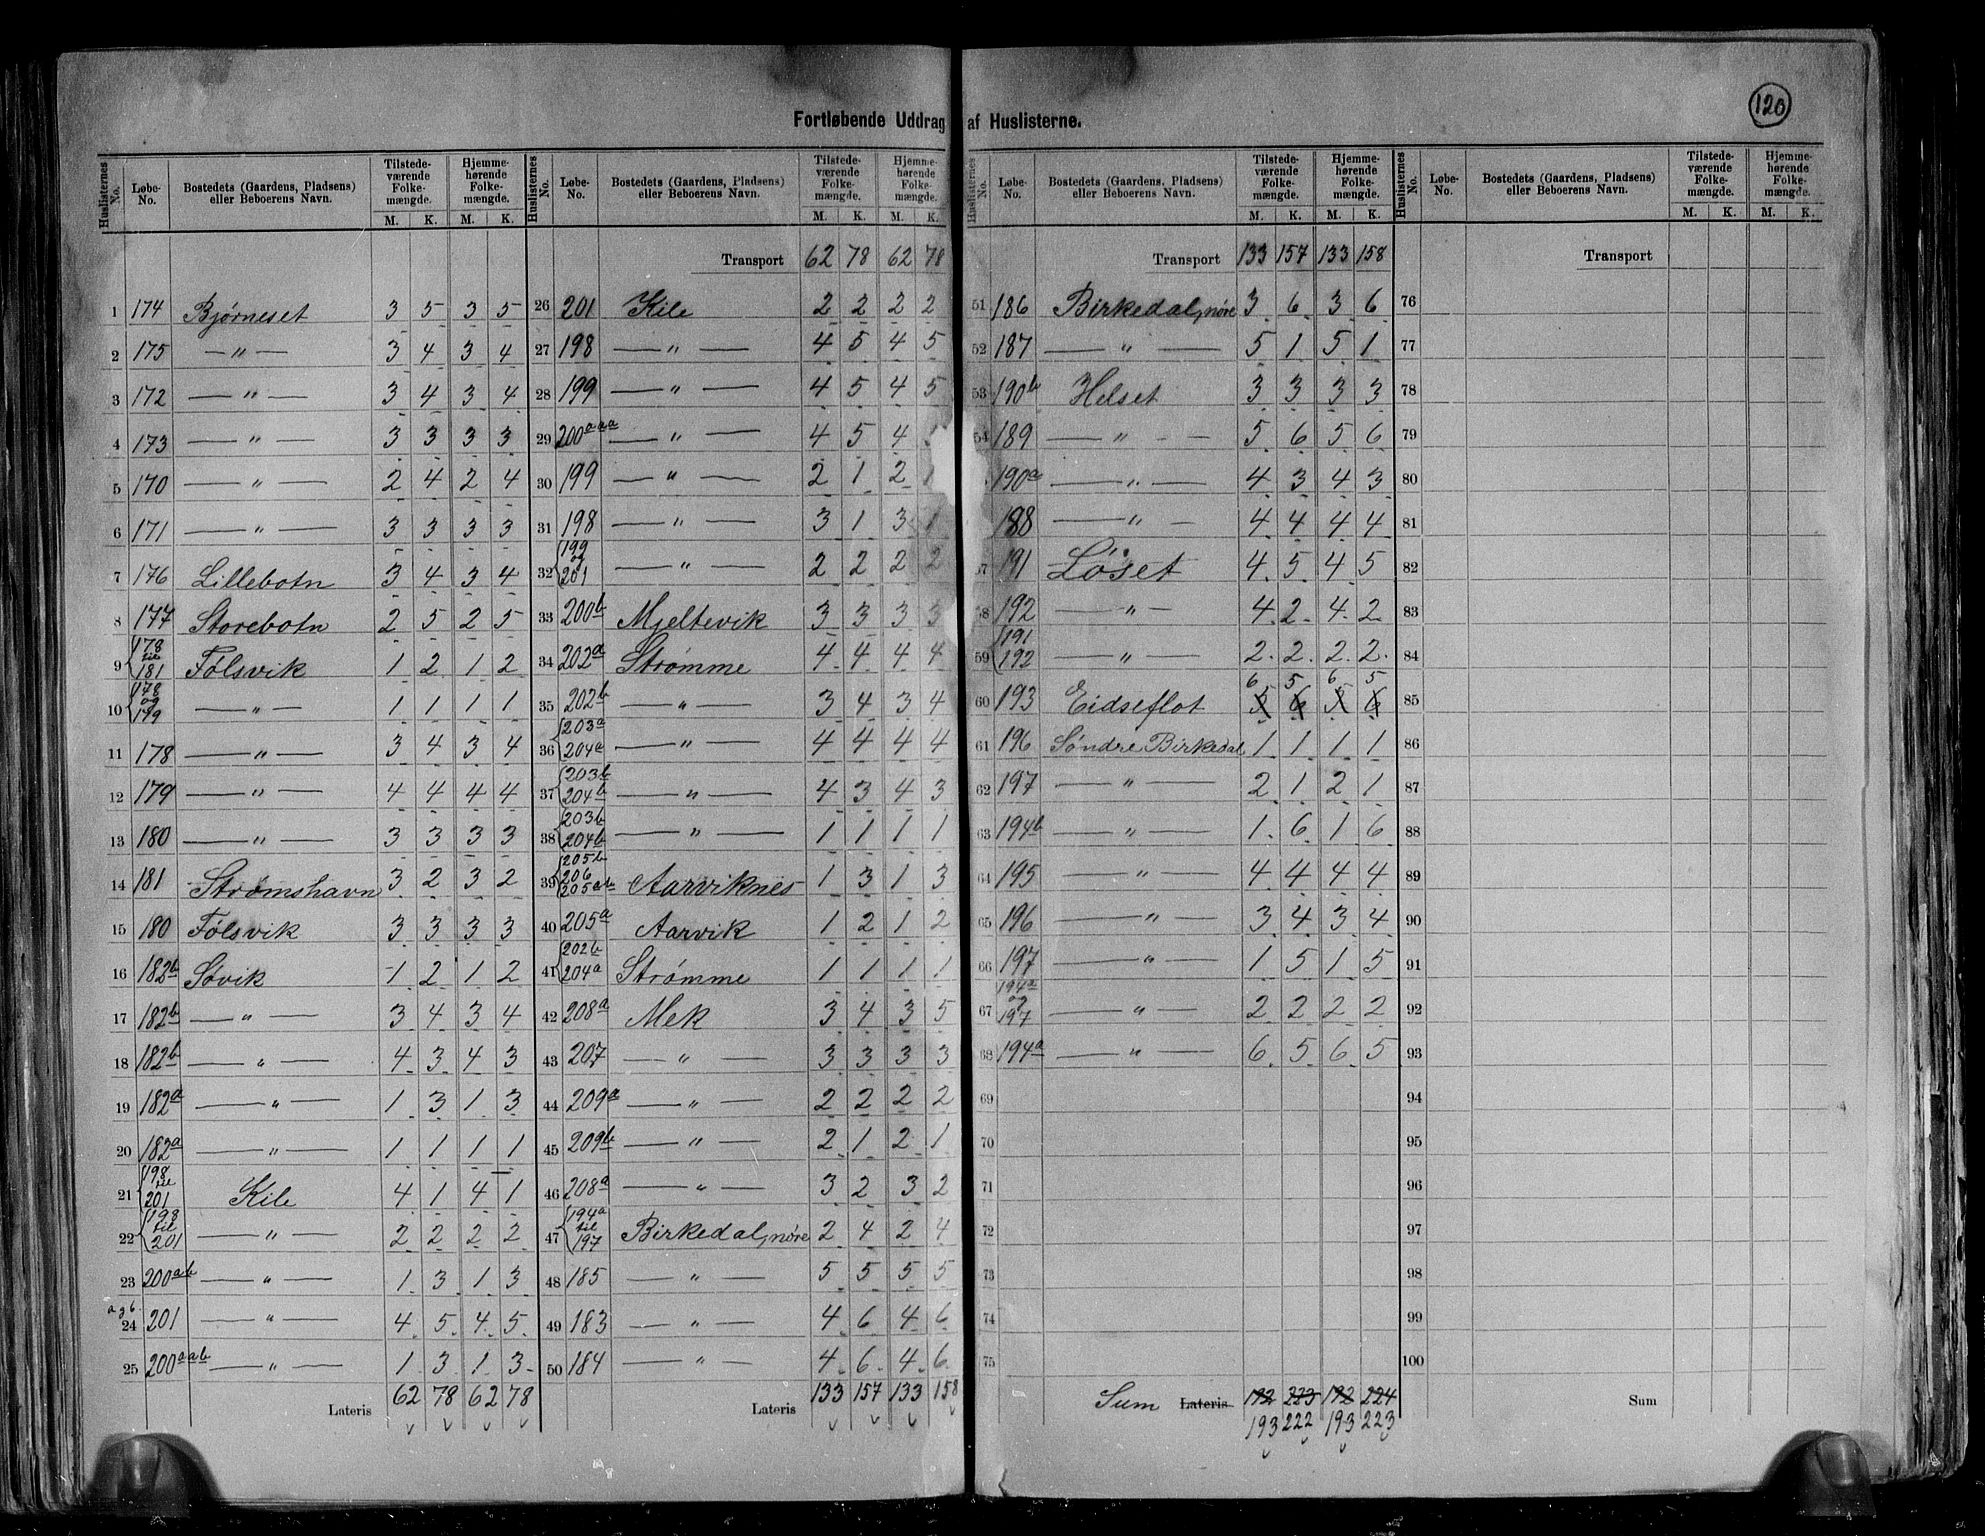 120
Fortløbende Uddrag af Huslisterne.
Huslisternes No. | Løbe-No. | Bostedets (Gaardens, Pladsens) eller Beboerens Navn. | Tilstedeværende Folkemængde. M. K. | Hjemmehørende Folkemængde. M. K.
1 174 Bjørneset 3 5 3 5
2 175 — " — 3 4 3 4
3 172 — " — 3 4 3 4
4 173 — " — 3 3 3 3
5 170 — " — 2 4 2 4
6 171 — " — 3 3 3 3
7 176 Lillebotn 3 4 3 4
8 177 Storebotn 2 5 2 5
9 178 til 181 Følsvik 1 2 1 2
10 178 og 179 — " — 1 1 1 1
11 178 — " — 3 4 3 4
12 179 — " — 4 4 4 4
13 180 — " — 3 3 3 3
14 181 Strømshavn 3 2 3 2
15 180 Følsvik 3 3 3 3
16 182b Søvik 1 2 1 2
17 182b — " — 3 4 3 4
18 182b — " — 4 3 4 3
19 182a — " — 1 3 1 3
20 182a — " — 1 1 1 1
21 198 til 201 Kile 4 1 4 1
22 198 til 201 — " — 2 2 2 2
23 200ab — " — 1 3 1 3
24 201 — " — 4 5 4 5
25 200aab — " — 1 3 1 3
Lateris 62 78 62 78
Huslisternes No. | Løbe-No. | Bostedets (Gaardens, Pladsens) eller Beboerens Navn. | Tilstedeværende Folkemængde. M. K. | Hjemmehørende Folkemængde. M. K.
Transport 62 78 62 78
26 201 Kile 2 2 2 2
27 198 — " — 4 5 4 5
28 199 — " — 4 5 4 5
29 200aaa — " — 4 5 4
30 199 — " — 2 1 2 1
31 198 — " — 3 1 3 1
32 199 og 201 — " — 2 2 2 2
33 200b Mjeltevik 3 3 3 3
34 202a Strømme 4 4 4 4
35 202b — " — 3 4 3 4
36 203a 204a — " — 4 4 4 4
37 203b 204b — " — 4 3 4 3
38 203b 204b — " — 1 1 1 1
39 205b 206 205ab Aarviknes 1 3 1 3
40 205a Aarvik 1 2 1 2
41 202b 204a Strømme 1 1 1 1
42 208a Mek 3 4 3 5
43 207 — " — 3 3 3 3
44 209a — " — 2 2 2 2
45 209b — " — 2 1 2 1
46 208a — " — 3 2 3 2
47 194a til 197 Birkedal, nøre 2 4 2 4
48 185 — " — 5 5 5 5
49 183 — " — 4 6 4 6
50 184 — " — 4 6 4 6
Lateris 133 157 133 158
Huslisternes No. | Løbe-No. | Bostedets (Gaardens, Pladsens) eller Beboerens Navn. | Tilstedeværende Folkemængde. M. K. | Hjemmehørende Folkemængde. M. K.
Transport 133 157 133 158
51 186 Birkedal, nøre 3 6 3 6
52 187 — " — 5 1 5 1
53 190b Helset 3 3 3 3
54 189 — " — 5 6 5 6
190a — " — 4 3 4 3
188 — " — 4 4 4 4
57 191 Løset 4 5 4 5
58 192 — " — 4 2 4 2
59 191 192 — " — 2 2 2 2
6 5 6 5
60 193 Eidseflot 5 6 5 6
61 196 Søndre Birkedal 1 1 1 1
62 197 — " — 2 1 2 1
63 194b — " — 1 6 1 6
64 195 — " — 4 4 4 4
65 196 — " — 3 4 3 4
66 197 — " — 1 5 1 5
67 194a og 197 — " — 2 2 2 2
68 194a — " — 6 5 6 5
69
70
71
72
73
74
75
Sum Lateris 192 223 192 224
193 222 193 223
Huslisternes No. | Løbe-No. | Bostedets (Gaardens, Pladsens) eller Beboerens Navn. | Tilstedeværende Folkemængde. M. K. | Hjemmehørende Folkemængde. M. K.
Transport
76
77
78
79
80
81
82
83
84
85
86
87
88
89
90
91
92
93
94
95
96
97
98
99
100
Sum